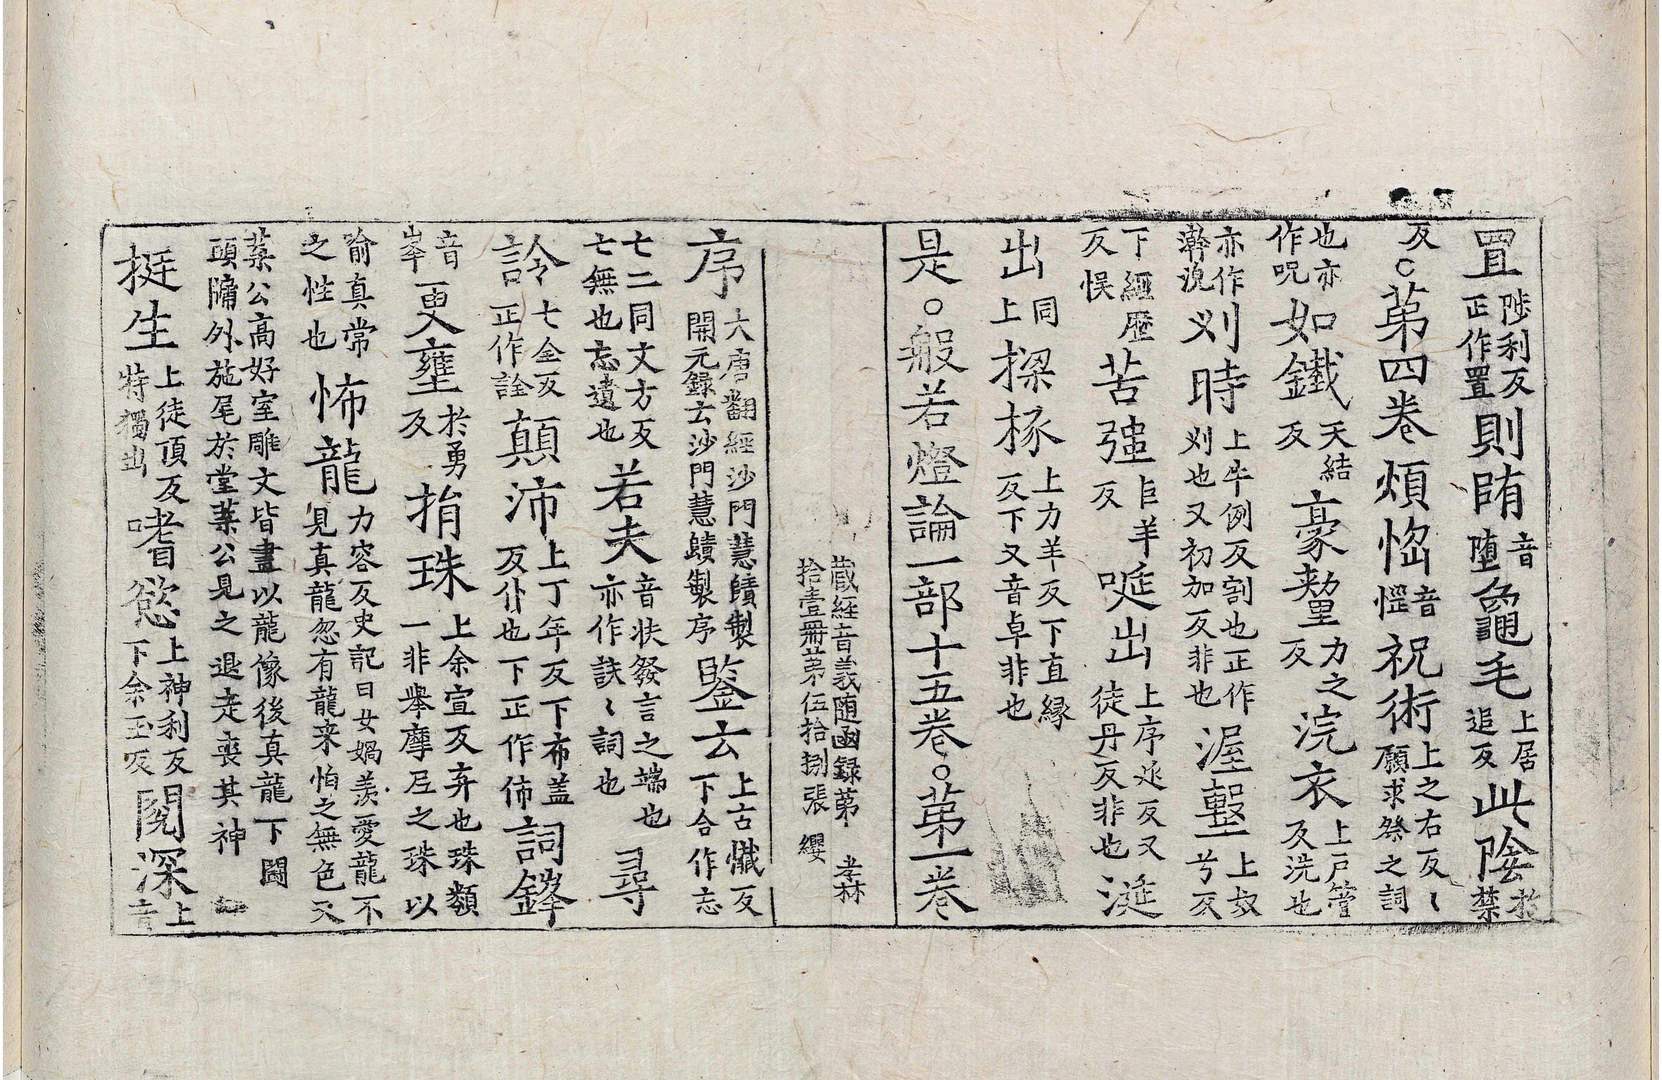 罝陟利反正作置則陏音堕龜毛上居追反此陰於禁
反○苐四卷煩惱音祝術上之右反〻願求祭之詞
也亦作呪如鐵天結反豪力之反浣衣上戸管反洗也
亦作澣涗刈時上牛例反割也正作刈也又初加反非也渥上兮反
下經歷反悮苦强巨羊反唌出上序延反又徒丹反非也涎
出同上樑椓上力羊反下直縁反下又音卓非也
是○般若燈論一部十五卷○苐一卷
藏經音義随函録苐 孝林
拾壹冊苐伍拾捌張 纓
序大唐翻經沙門慧賾製開元録云沙門慧賾製序鑒云上古懺反下合作忘
亡二同文方反亡無也忘遺也若夫音扶發言之端也亦作〻詞也尋
詅七全反正作詮顛沛上丁年反下布盖反仆也下正作詞鋒
音峯一更壅於勇反捐珠上余宣反弃也珠纇一非舉摩尼之珠以
喻真常之性也怖龍力容反史記曰女媧羡愛龍不見真龍忽有龍来怕之無色又
葉公高好室雕文皆畫以龍像後真龍下闚頭牖外施尾於堂葉公見之退走喪其神
挺生上徒頂反特獨出嗜慾上神利反下余玉反閱深上音